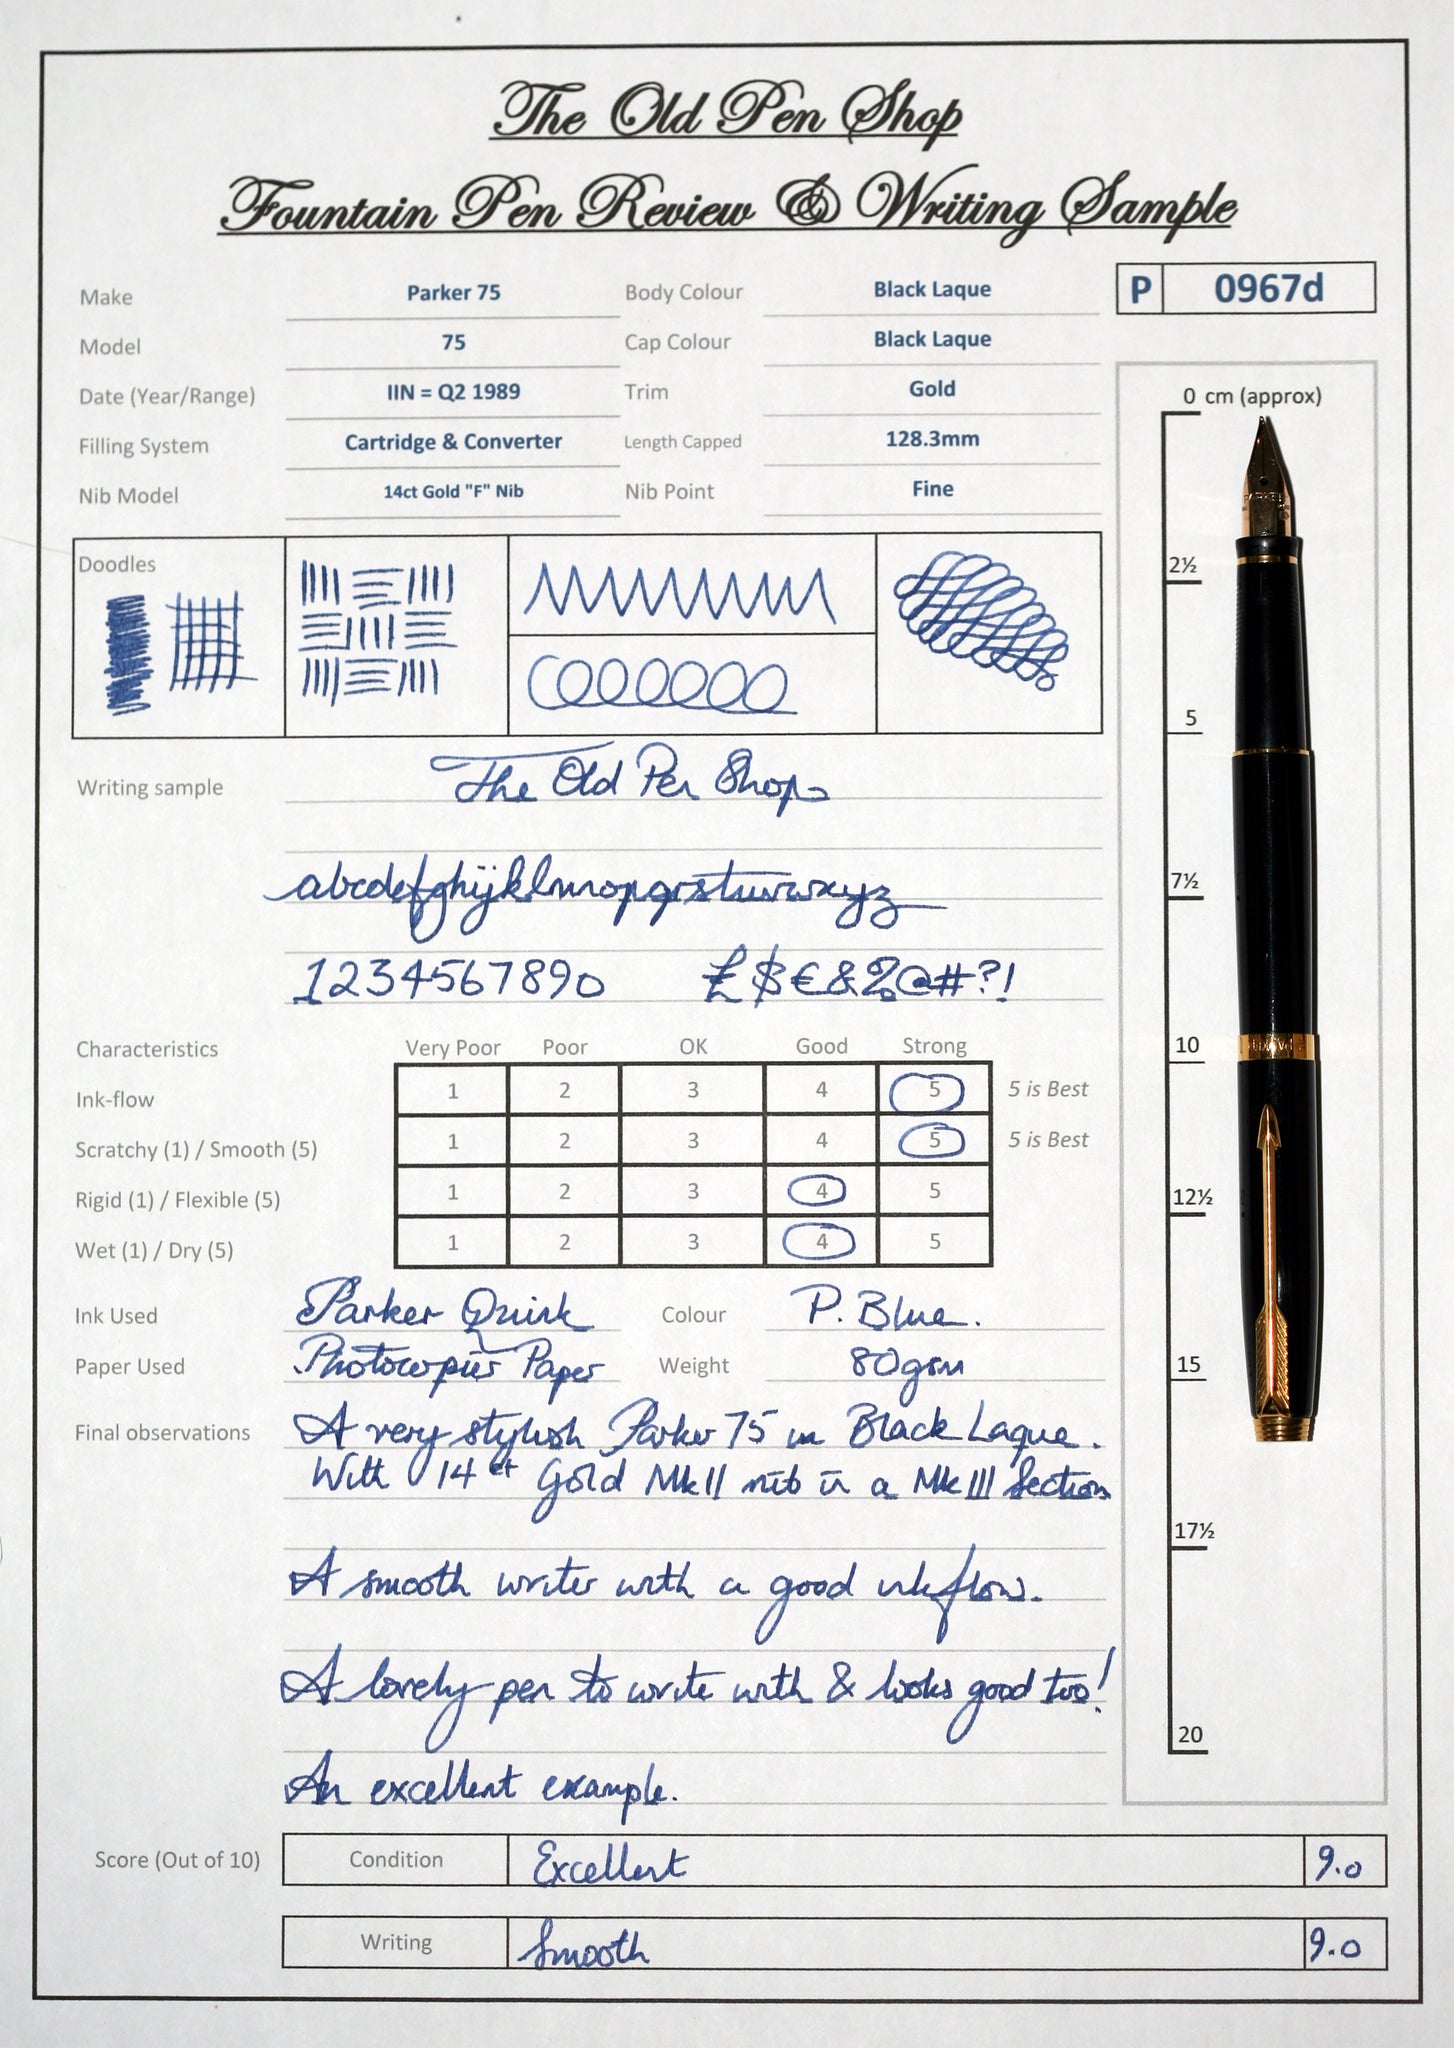 The Old Pen Shop
Fountain Pen Review & Writing Sample
Make Parker 75 Body Colour Black Laque P 0967d
Model 75 Cap Colour Black Laque
Date (Year/Range) IIN = Q2 1989 Trim Gold
Filling System Cartridge & Converter Length Capped 128.3mm
Nib Model 14ct Gold "F" Nib Nib Point Fine
0 cm (approx)
2½
5
7½
10
12½
15
17½
20
PARKER
Doodles
Writing sample The Old Pen Shop
abcdefghijklmnopqrstuvwxyz
1234567890 £$€&%@#?!
Characteristics Very Poor Poor OK Good Strong
Ink-flow 1 2 3 4 5 5 is Best
Scratchy (1) / Smooth (5) 1 2 3 4 5 5 is Best
Rigid (1) / Flexible (5) 1 2 3 4 5
Wet (1) / Dry (5) 1 2 3 4 5
Ink Used Parker Quink Colour P. Blue.
Paper Used Photocopier Paper Weight 80gsm
Final observations A very stylish Parker 75 in Black Laque.
With 14ct Gold Mk II nib in a Mk III Section
A smooth writer with a good inkflow.
A lovely pen to write with & looks good too!
An excellent example.
Score (Out of 10) Condition Excellent 9.0
Writing Smooth 9.0